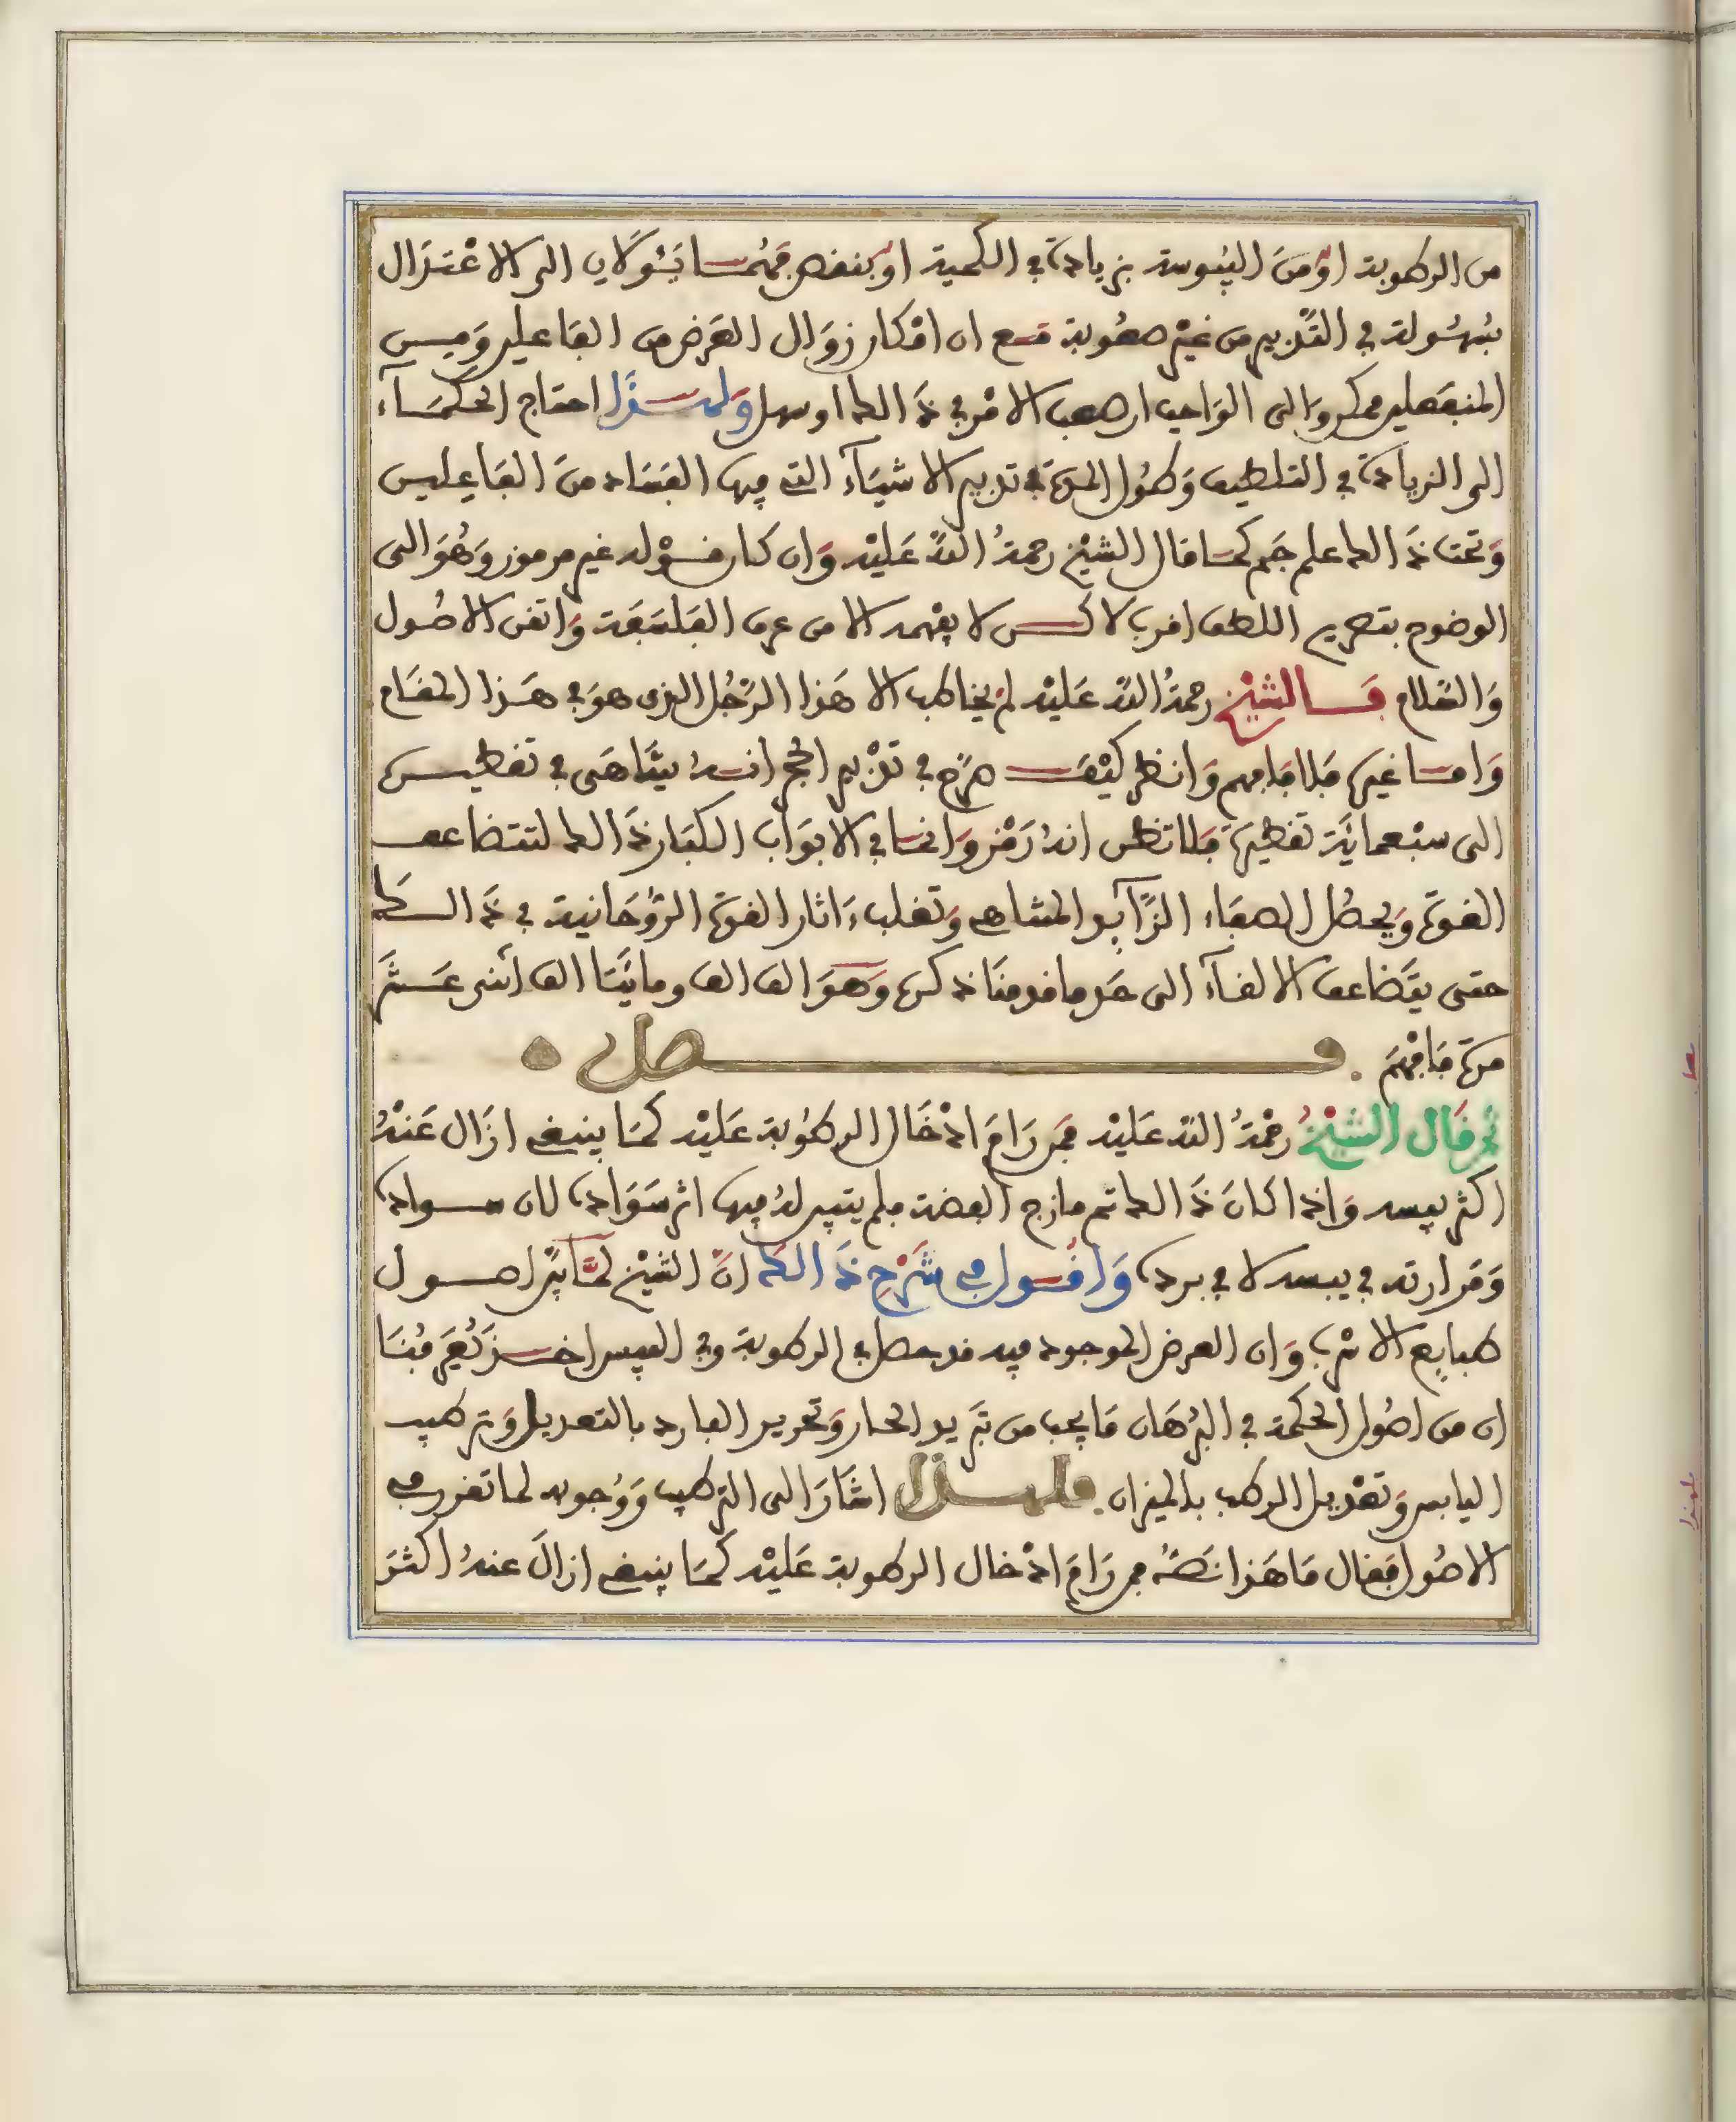 من الرطوبة اوْ منَ اليُبوسة بزيادة في الكمية اوْ بنفص فهُمَا يَئُولَان الى الاعْتدَال
بسُهُولة في التَّدْبير من غيْر صعُوبة مَع ان امْكان زوَال العَرَض من الفاعلين وَمِن
المنفَعلين ممكن وَالى الوَاجب ان صعب الامْر في ذَالك او سهل وَلهَذَا احتاج الحكمَآء
الى الزيادَة في التلطيف وَطُول المدة في تدبير الاشيَآء التي فيها الفسَاد منَ الفَاعِلين
وَتحت ذَالك علم جَم كمَا قال الشيْخ رحمةُ اللَّه عَليْه وَان كان قوْله غير مرموز وَهُوَ الى
الوضوح بتصريح اللفظ اقرب لاكن لا يفْهمه الا من عرف الفلسَفَة وَاتقن الاصُول
وَالكلام فَالشيْخ رحمةُ اللَّه عَليْه لمْ يخاطب الا هَذا الرَّجُل الذى هوَ في هَذا المقَام
وَامَا غيرهَا فَلا فَافهم وَانظر كيْفَ صرَّح في تدْبير الحجر انه يتَنَاهَى في تقطيره
الى سبْعمائَة تقطيرَة فَلا تظن انهُ رَمْز وَانمَا في الابوَاب الكبَار ذَالك لتتضاعف
القوة وَيحصُل الصفَاء الزَّايد المتناهي وَتغلب ءَاثار القوة الرُّوحَانية في ذَالك
حتى يتَضاعف الالقآء الى حَد ما قدمنَا ذكره وَهوَ الف الف ومائتَا الف اثنى عَشَر
مرة فَافْهَم فصل
ثم قَال الشيْخُ رحْمةُ اللَّه عَليْه فمن رَامَ ادْخَال الرطُوبة عَليْه كمَا ينبغي ازَال عَنْهُ
اكثر يبسه وَاذا كانَ ذَالك ثم مازج الفضة فلم يتبين لهُ فيها اثر سَوَاده لان سواده
وَمرارته في يبسه لا في برده وَاقُول في شَرْح ذَالك انَّ الشيْخ لمَّا بيَّن اصول
طبايع الاسْرب وَان العرض الموجود فيه قد حصل في الرطوبة وفي اليبس اخذ يُعَرفُنَا
ان من اصُول الحكمة في البُرْهَان مَا يجب من تَبْريد الحار وَتحرير البارد بالتعديل وَترطيب
اليابس وَتعْديل الرطب بالميزان فلهذا اشَارَ الى الترطيب وَوُجوبه لما تقرر في
الاصُول فقال مَا هَذا نَصُّه فمن رَامَ ادْخال الرطوبة عَليْه كمَا ينبغي ازالَ عنهُ اكثَرَ